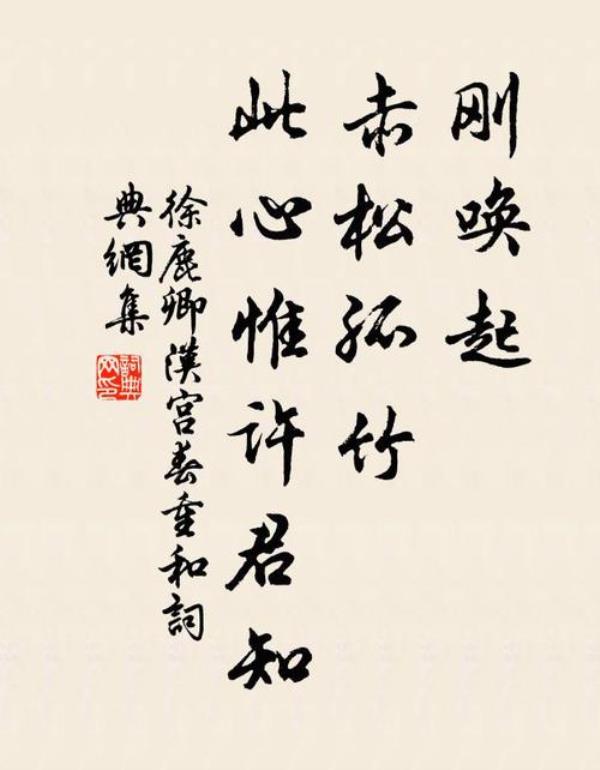 刚唤起
赤松孤竹
此心惟许君知
徐鹿卿漢宫春重和詞
典網集
詞典
网印